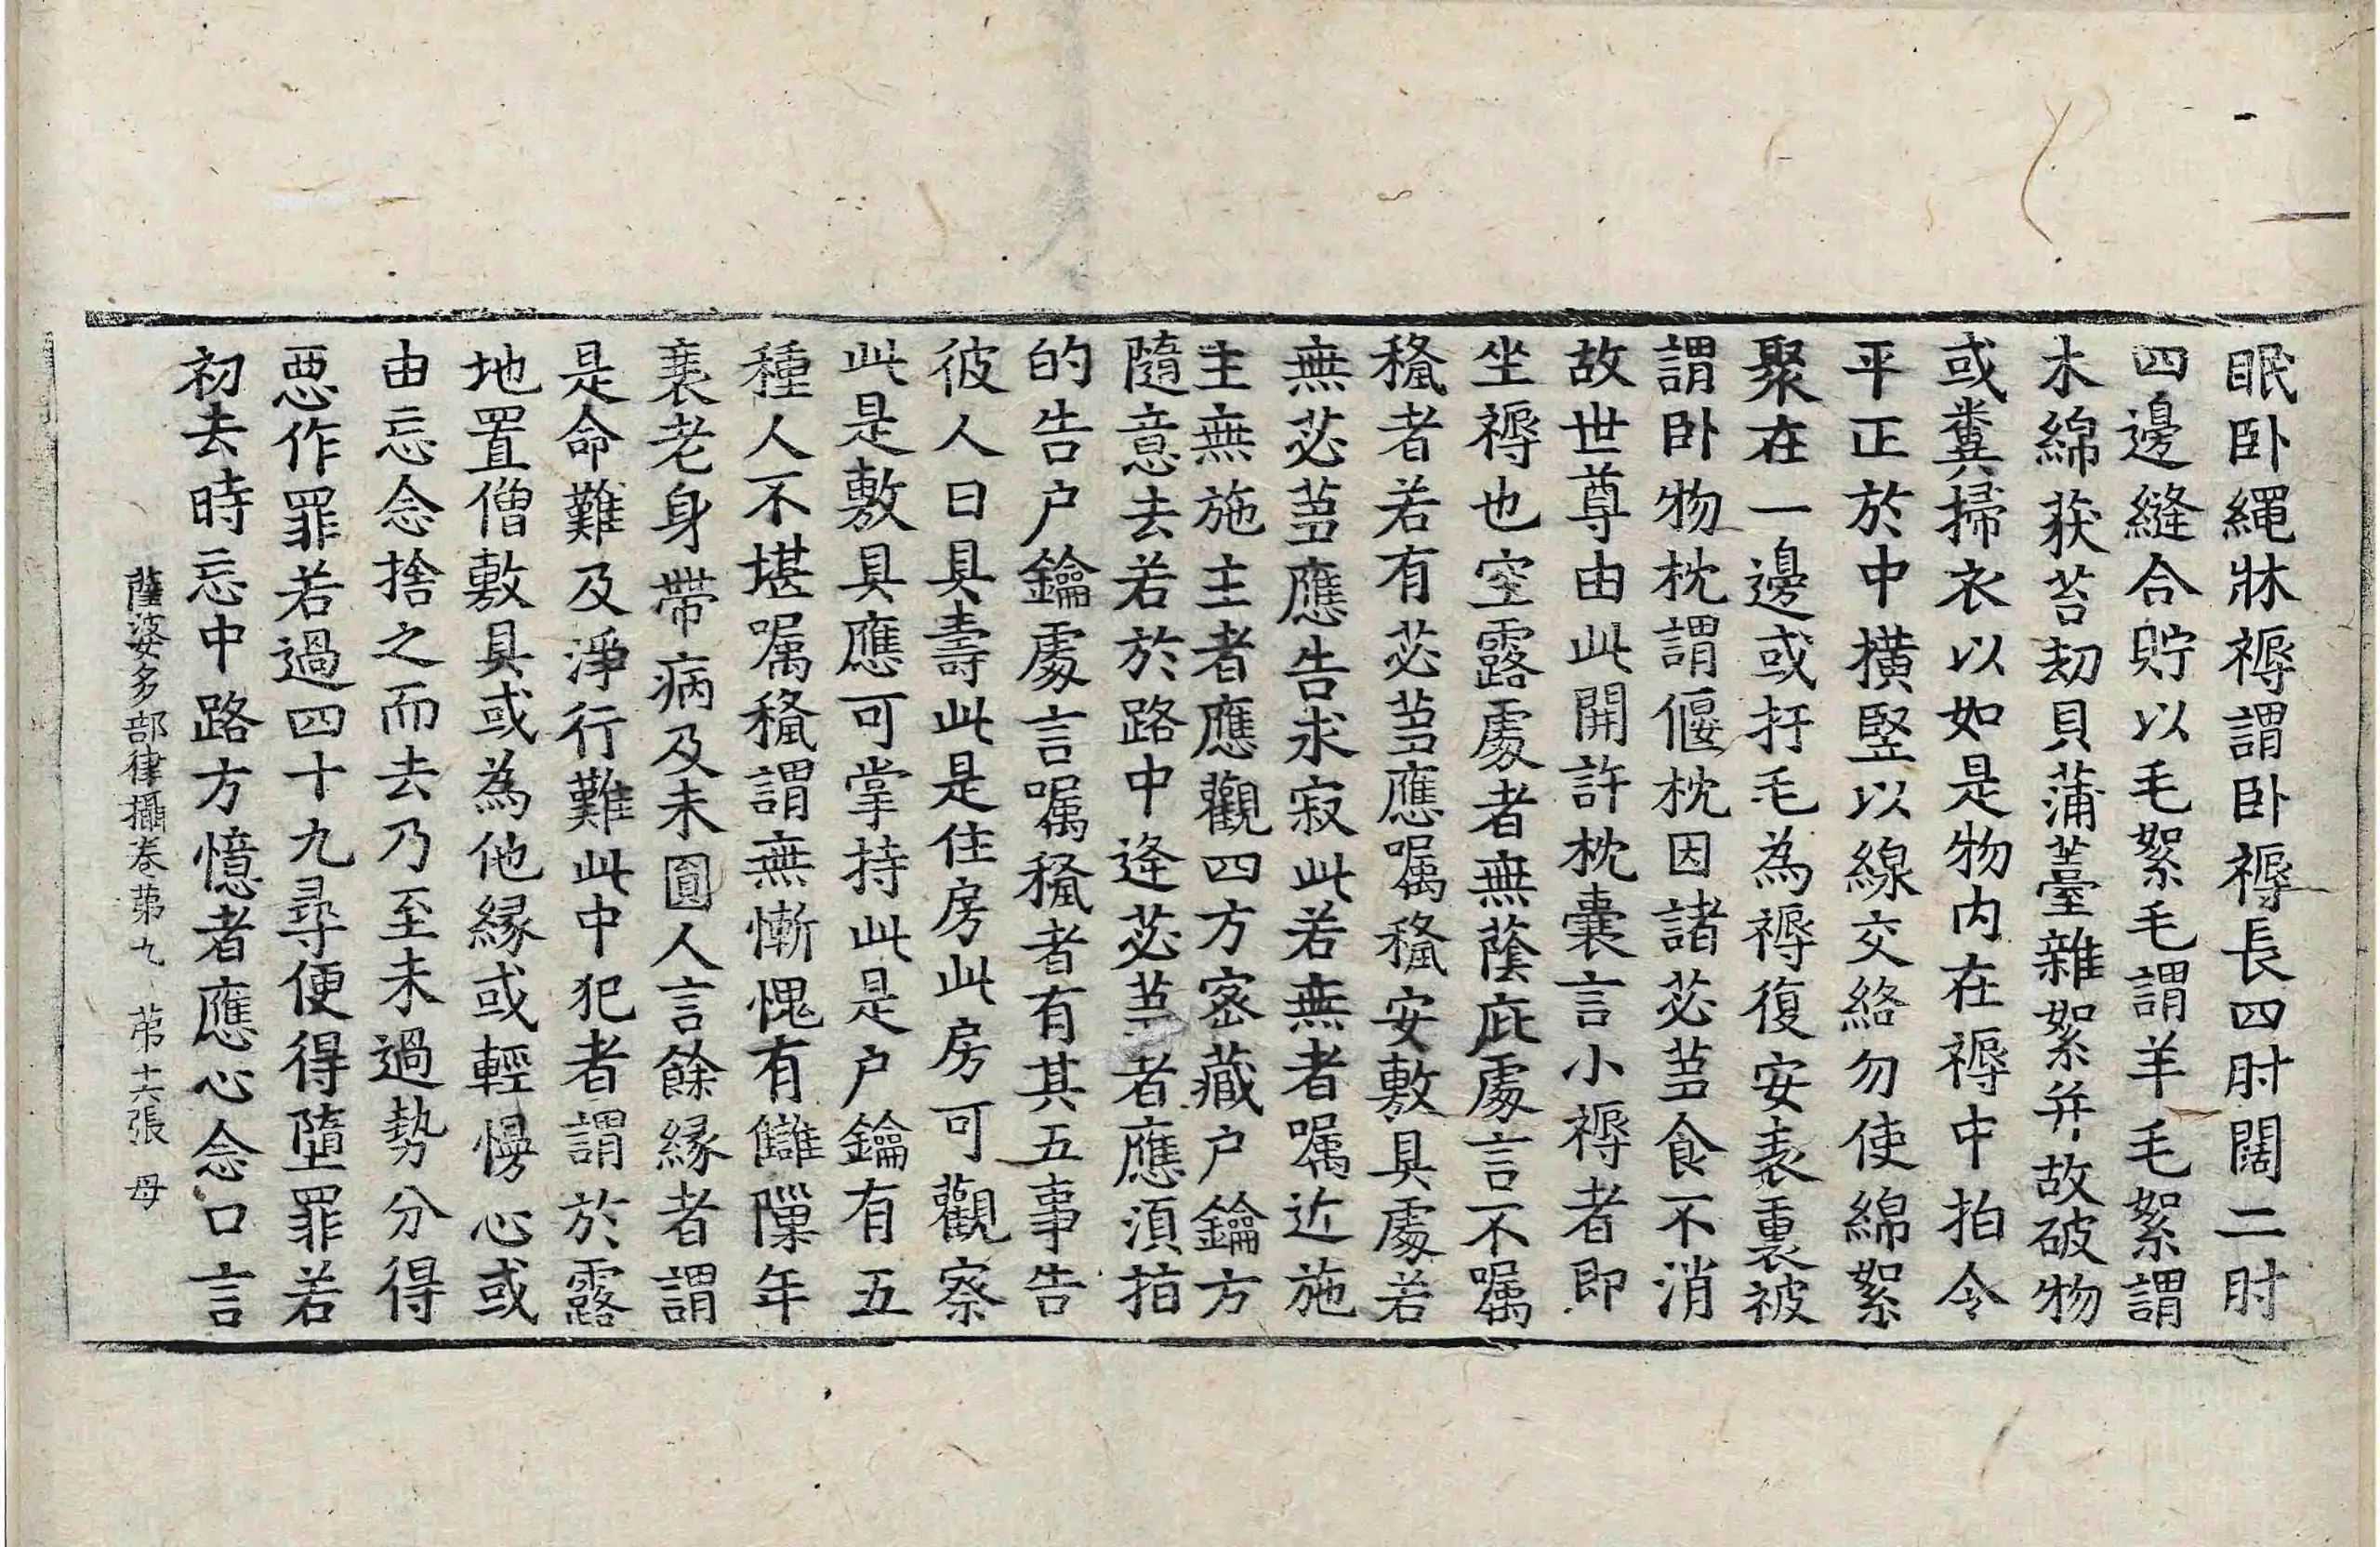 眠卧繩牀褥謂卧褥長四肘闊二肘
四邊縫合貯以毛絮毛謂羊毛絮謂
木綿荻苔劫貝蒲薹雜絮并故破物
或糞掃衣以如是物內在褥中拍令
平正於中橫竪以線交絡勿使綿絮
聚在一邊或扜毛為褥復安表裏被
謂卧物枕謂偃枕因諸苾芻食不消
故世尊由此開許枕囊言小褥者即
坐褥也空露處者無蔭庇處言不囑
𥡴者若有苾芻應囑𥡴安敷具處若
無苾芻應告求寂此若無者囑近施
主無施主者應觀四方密藏户鑰方
隨意去若於路中逢苾芻者應須指
的告户鑰處言囑𥡴者有其五事告
彼人曰具壽此是住房此房可觀察
此是敷具應可掌持此是户鑰有五
種人不堪囑𥡴謂無慚愧有讎隟年
衰老身帶病及未圓人言餘緣者謂
是命難及淨行難此中犯者謂於露
地置僧敷具或為他緣或輕慢心或
由忘念捨之而去乃至未過勢分得
惡作罪若過四十九尋便得墮罪若
初去時忘中路方憶者應心念口言
薩婆多部律攝卷苐九 苐十六張 母